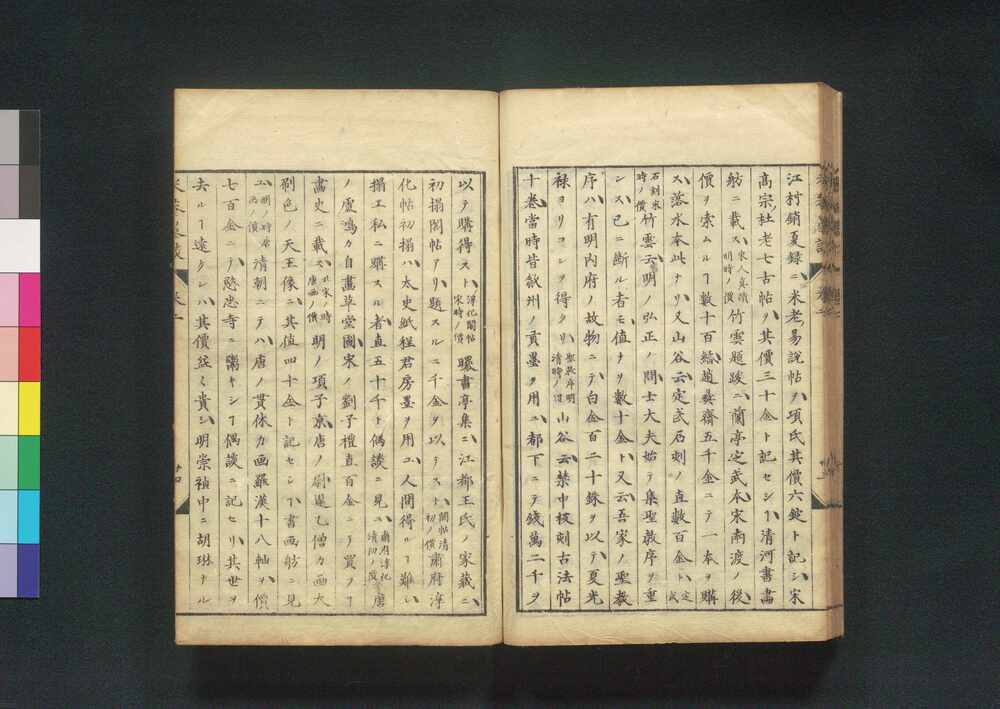 江村銷夏録ニ、米老易說帖ヲ項氏其價六錠ト記シ、宋
高宗、杜老七古帖ヲ、其價三十金ト記セシヿ、清河書畵
舫ニ載ス、宋人真蹟明時ノ價竹雲題跋ニ、蘭亭定武本、宋南渡ノ後、
價ヲ索ムルヿ數十百緡、趙彝齋五千金ニテ一本ヲ購
ス、落水本此ナリ、又山谷云、定武石刻ノ直數百金ト、定武
石刻宋時ノ價竹雲云、明ノ弘正ノ間、士大夫始テ集聖教序ヲ重
シス、已ニ斷ル者モ、値ヲリ數十金ト、又云、吾家ノ聖教
序ハ、有明内府ノ故物ニテ、白金百二十銖ヲ以テ、夏光
禄ヨリコレヲ得タリ、聖教序明清時ノ價山谷云、禁中板刻古法帖
十卷、當時皆歙州ノ貢墨ヲ用ユ、都下ニテ錢萬二千ヲ
以テ購得スト、淳化閣帖宋時ノ價曝書亭集ニ、江都王氏ノ家藏ニ、
初搨閣帖アリ、題スルニ千金ヲ以テスト、閣帖清初ノ價肅府淳
化帖初搨ハ、太史紙程君房墨ヲ用ユ、人間得ルヿ難シ、
搨工私ニ購スル者、直五十千ト、偶談ニ見ユ、肅府淳化清初ノ價唐
ノ盧鴻カ自畵草堂圖、宋ノ劉子禮直百金ニテ買フヿ
畵史ニ載ス、宋ノ時唐画ノ價明ノ項子京、唐ノ尉遲乙僧カ画大
剎色ノ天王像ニ、其値四十金ト記セシヿ、書画舫ニ見
ユ、明ノ時唐画ノ價清朝ニテハ、唐ノ貫休カ画羅漢十八軸ヲ、價
七百金ニテ、慜忠寺ニ鬻キシヿ、偶談ニ記セリ、其世ヲ
去ルヿ遠クシハ、其價益々貴シ、明崇禎中ニ胡琳ナル